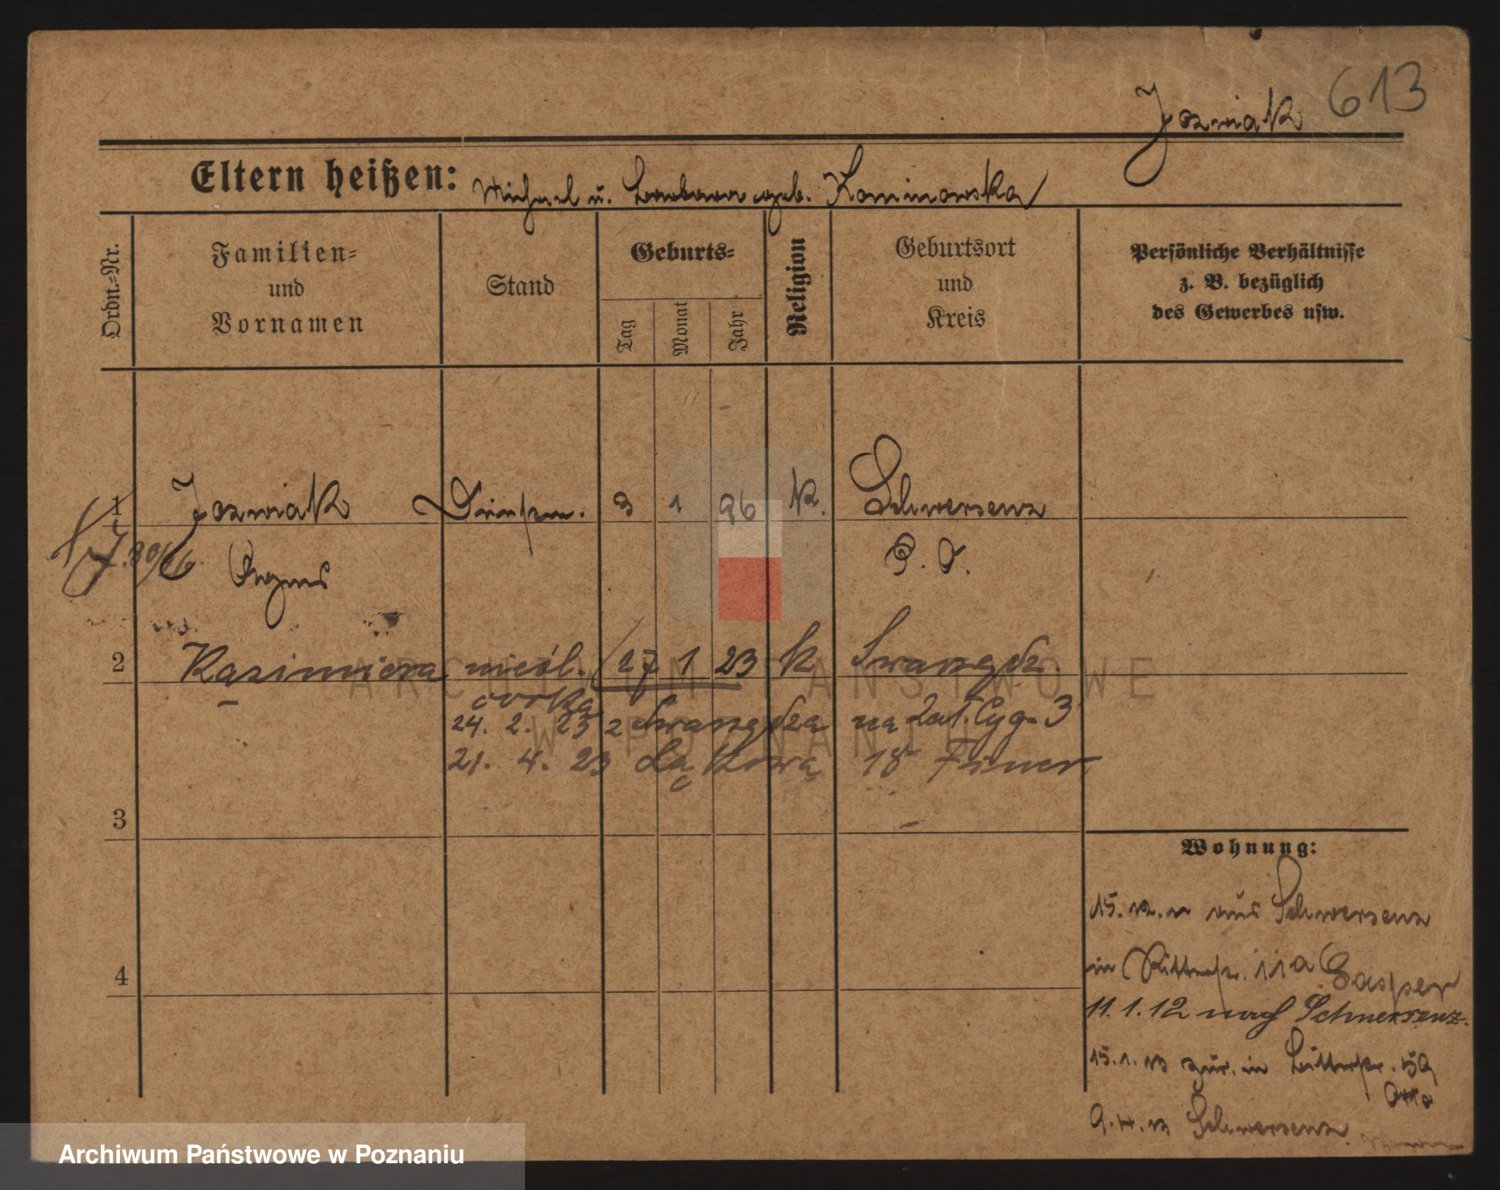 613
Jozwiak
Eltern heißen: Michael u. Barbara geb. Kaminowska
Ordn.-Nr.
Familien-
und
Vornamen
Stand
Geburts-
Tag
Monat
Jahr
Religion
Geburtsort
und
Kreis
Persönliche Verhältnisse
z. B. bezüglich
des Gewerbes usw.
1 Jozwiak 3 1 96 k. Schwersenz
Agnes P. O.
2 Kazimiera nieśl. 27 1 23 k Swarzędz
córka
24. 2. 23 z Swarzędza na 3
21. 4. 23 Łąkowa 18
3
4
Wohnung:
15. 12. 11 aus Schwersenz
in Ritterstr. 11a Casper
11. 1. 12 nach Schwersenz.
15. 1. 13 zur. in 59
Otto
9. 4. 13 Schwersenz
ARCHIWUM PAŃSTWOWE
W POZNANIU
Archiwum Państwowe w Poznaniu